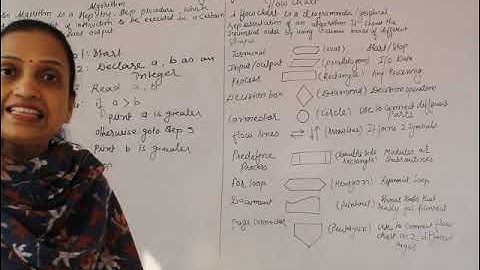 Algorithm
An Algorithm is a step by step procedure which
of instruction to be executed in a certain
and output
1: Start
2: Declare a, b as an
Integer
3: Read a, b
4: if a > b
print a is greater
otherwise goto step 5
print b is greater
Flow Chart
A flow chart is a diagrammatic / graphical
representation of an algorithm. It shows the
sequential steps by using various boxes of different
shapes
Terminal (oval) Start/Stop
Input/output (parallelogram) I/O Data
Process (Rectangle) Any Processing
Decision box (Diamond) Decision operations
Connector (Circle) Use to Connect different
Parts
flow lines (Arrowlines) It joins 2 symbols
Predefine (Double side Modules or
Process rectangle) Subroutines
For loop (Hexagon) Repeat Loop
Document (Printout) Print Data
Page Connector (Pentagon) Use to connect flow
chart in 2 different
Pages